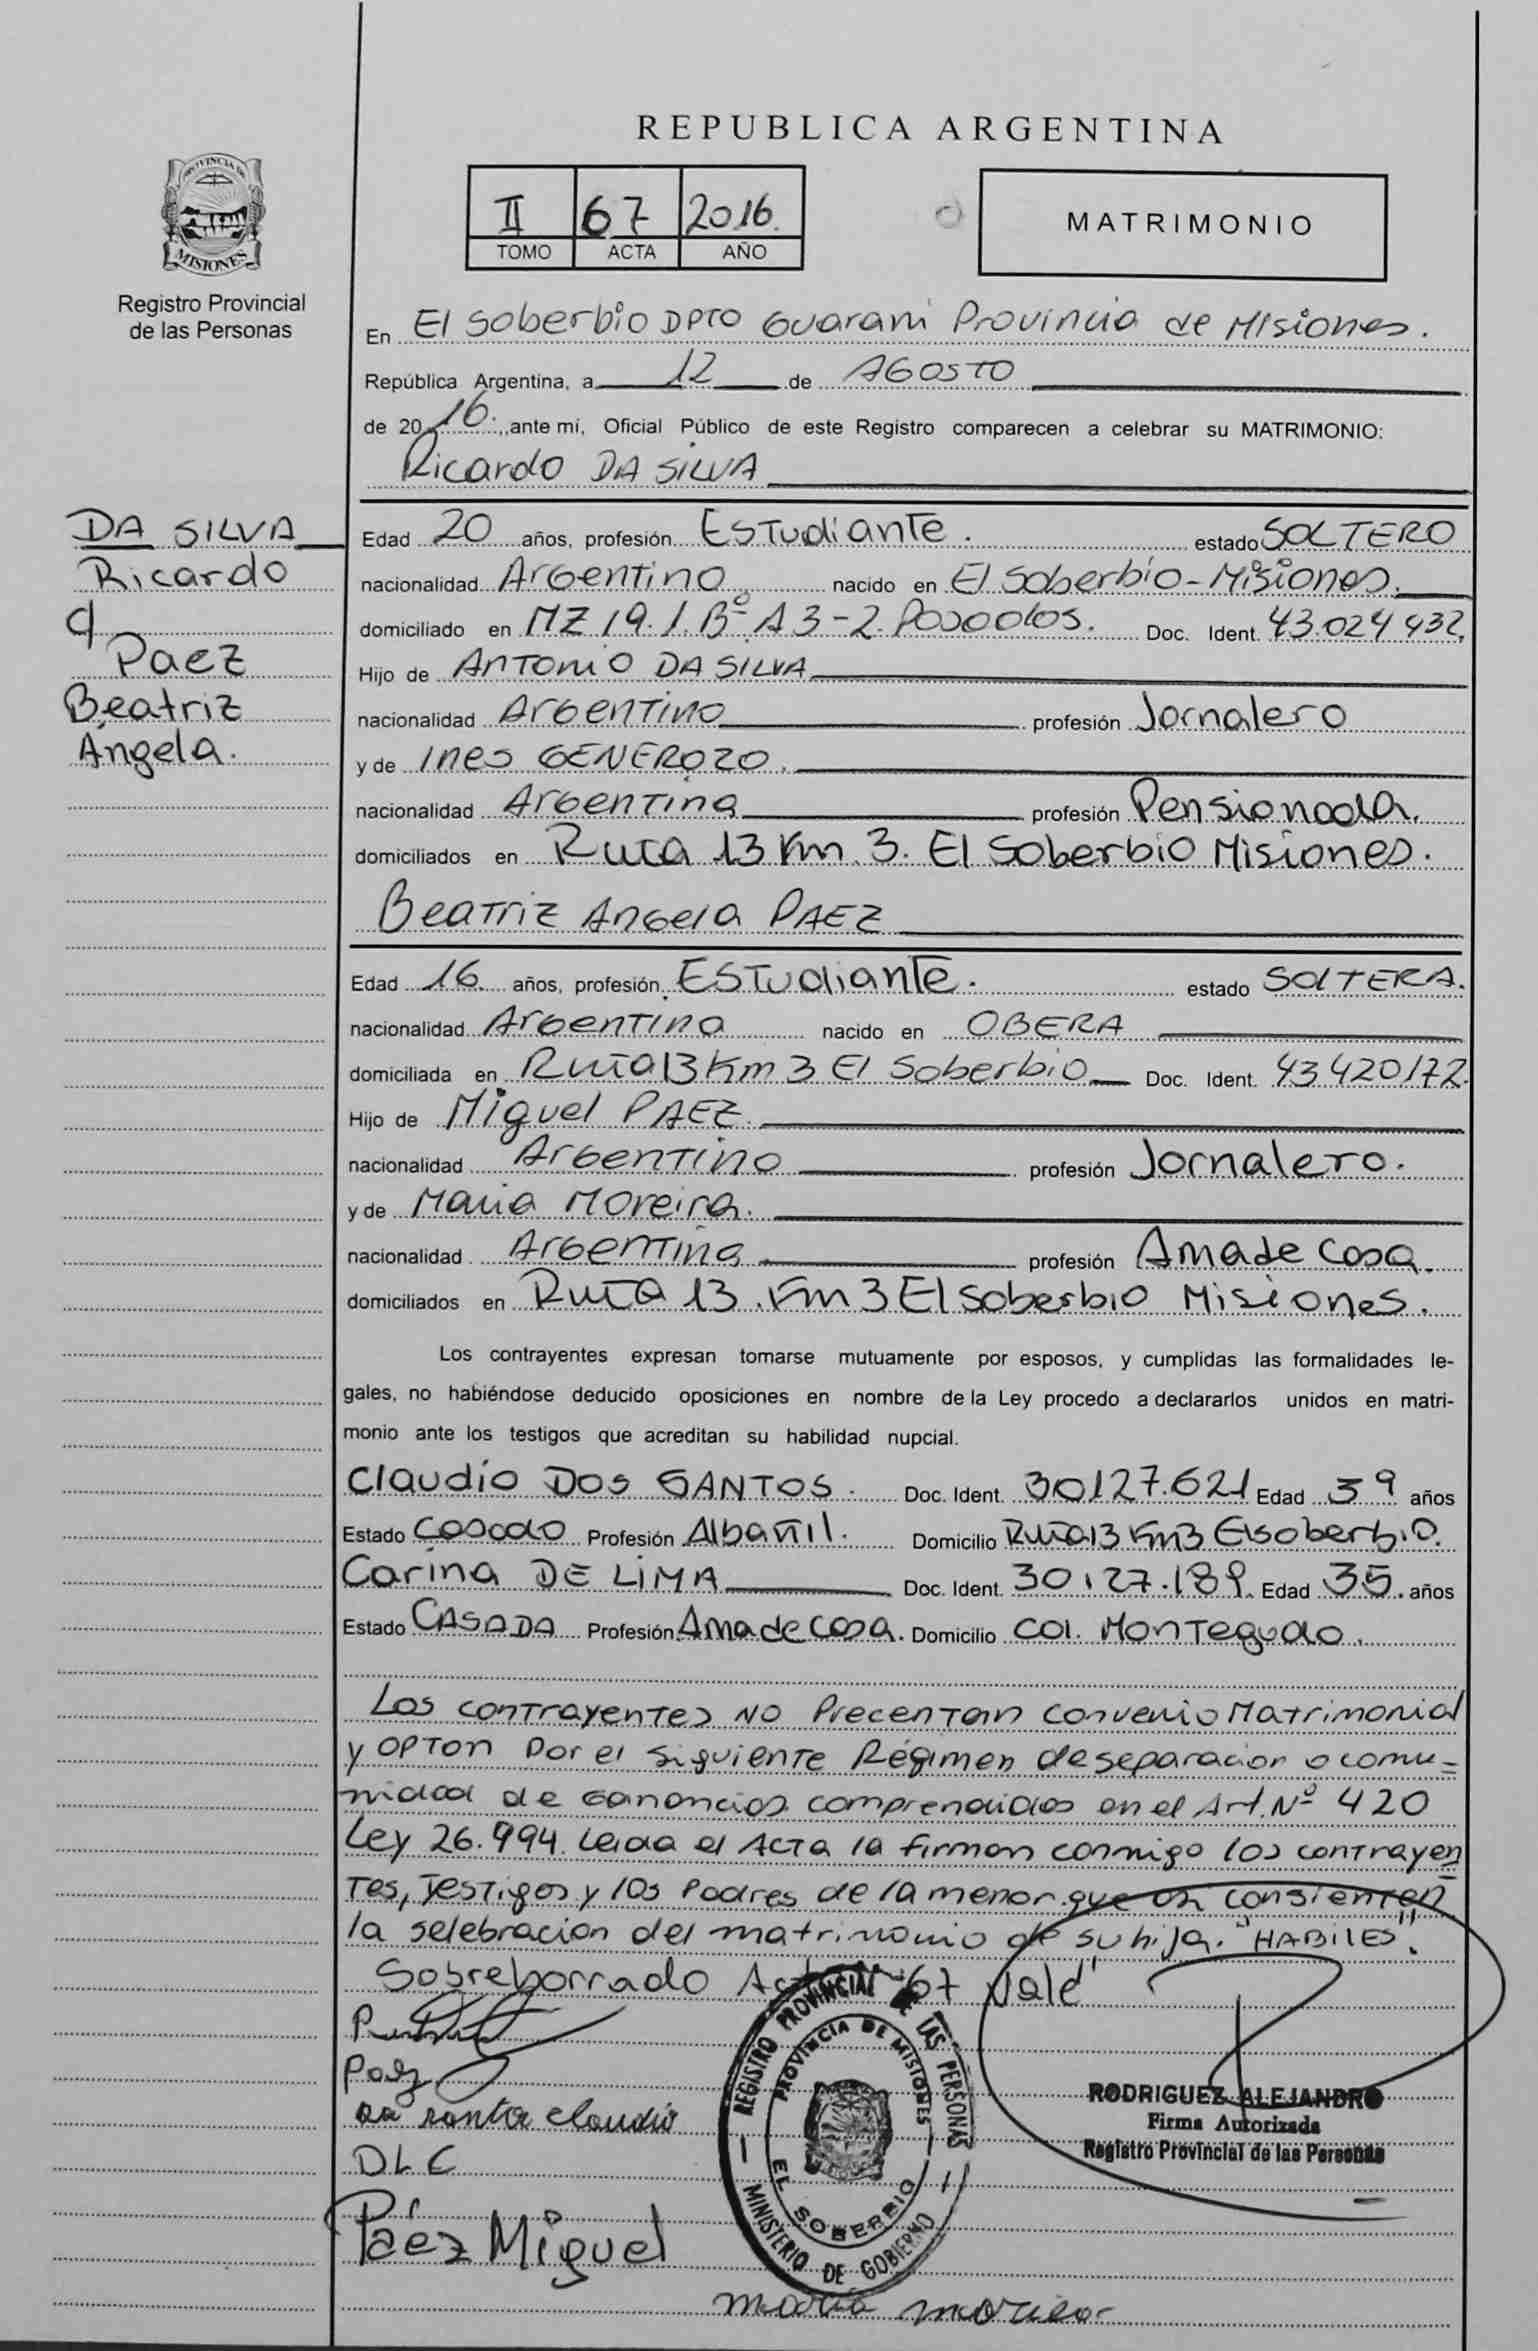 REPUBLICA ARGENTINA
PROVINCIA DE
MISIONES
Registro Provincial
de las Personas
II 67 2016.
TOMO ACTA AÑO
MATRIMONIO
En El Soberbio DPTO Guarani Provincia de Misiones.
República Argentina, a 12 de AGOSTO
de 2016., ante mí, Oficial Público de este Registro comparecen a celebrar su MATRIMONIO:
Ricardo DA SILVA
DA SILVA
Ricardo
Paez
Beatriz
Angela.
Edad 20 años, profesión Estudiante. estado SOLTERO
nacionalidad Argentino nacido en El Soberbio-Misiones.
domiciliado en MZ 19.1.Bº A3-2. Doc. Ident. 43.024.932.
Hijo de Antonio DA SILVA
nacionalidad Argentino profesión Jornalero
y de Ines GENEROZO.
nacionalidad Argentina profesión Pensionada.
domiciliados en Ruta 13 Km 3. El Soberbio Misiones.
Beatriz Angela PAEZ
Edad 16. años, profesión Estudiante. estado SOLTERA.
nacionalidad Argentina nacido en OBERA
domiciliada en Ruta 13 Km 3 El Soberbio Doc. Ident. 43420172.
Hijo de Miguel PAEZ.
nacionalidad Argentino profesión Jornalero.
y de Maria Moreira.
nacionalidad Argentina profesión Ama de Casa.
domiciliados en Ruta 13. Km 3 El Soberbio Misiones.
Los contrayentes expresan tomarse mutuamente por esposos, y cumplidas las formalidades le-
gales, no habiéndose deducido oposiciones en nombre de la Ley procedo a declararlos unidos en matri-
monio ante los testigos que acreditan su habilidad nupcial.
Claudio DOS SANTOS. Doc. Ident. 30127.621 Edad 39 años
Estado Casado Profesión Albañil. Domicilio Ruta 13 Km3 El soberbio.
Carina DE LIMA Doc. Ident. 30127.189. Edad 35. años
Estado CASADA Profesión Ama de casa. Domicilio Col. Monteagudo.
Los contrayentes NO Precentan convenio Matrimonial
y OPTan por el siguiente Régimen de separacion o comu=
nidad de ganancias comprendidas en el Art. Nº 420
Ley 26.994. Leida el Acta la firman conmigo los contrayen
tes, Testigos y los Padres de la menor que consienten
la selebracion del matrimonio de su hija. "HABILES".
Sobreborrado Acta 67 Vale
Paez
claudio
DLC
Páez Miguel
maria
REGISTRO PROVINCIAL DE LAS PERSONAS
PROVINCIA DE MISIONES
EL SOBERBIO
MINISTERIO DE GOBIERNO
RODRIGUEZ ALEJANDRO
Firma Autorizada
Registro Provincial de las Personas